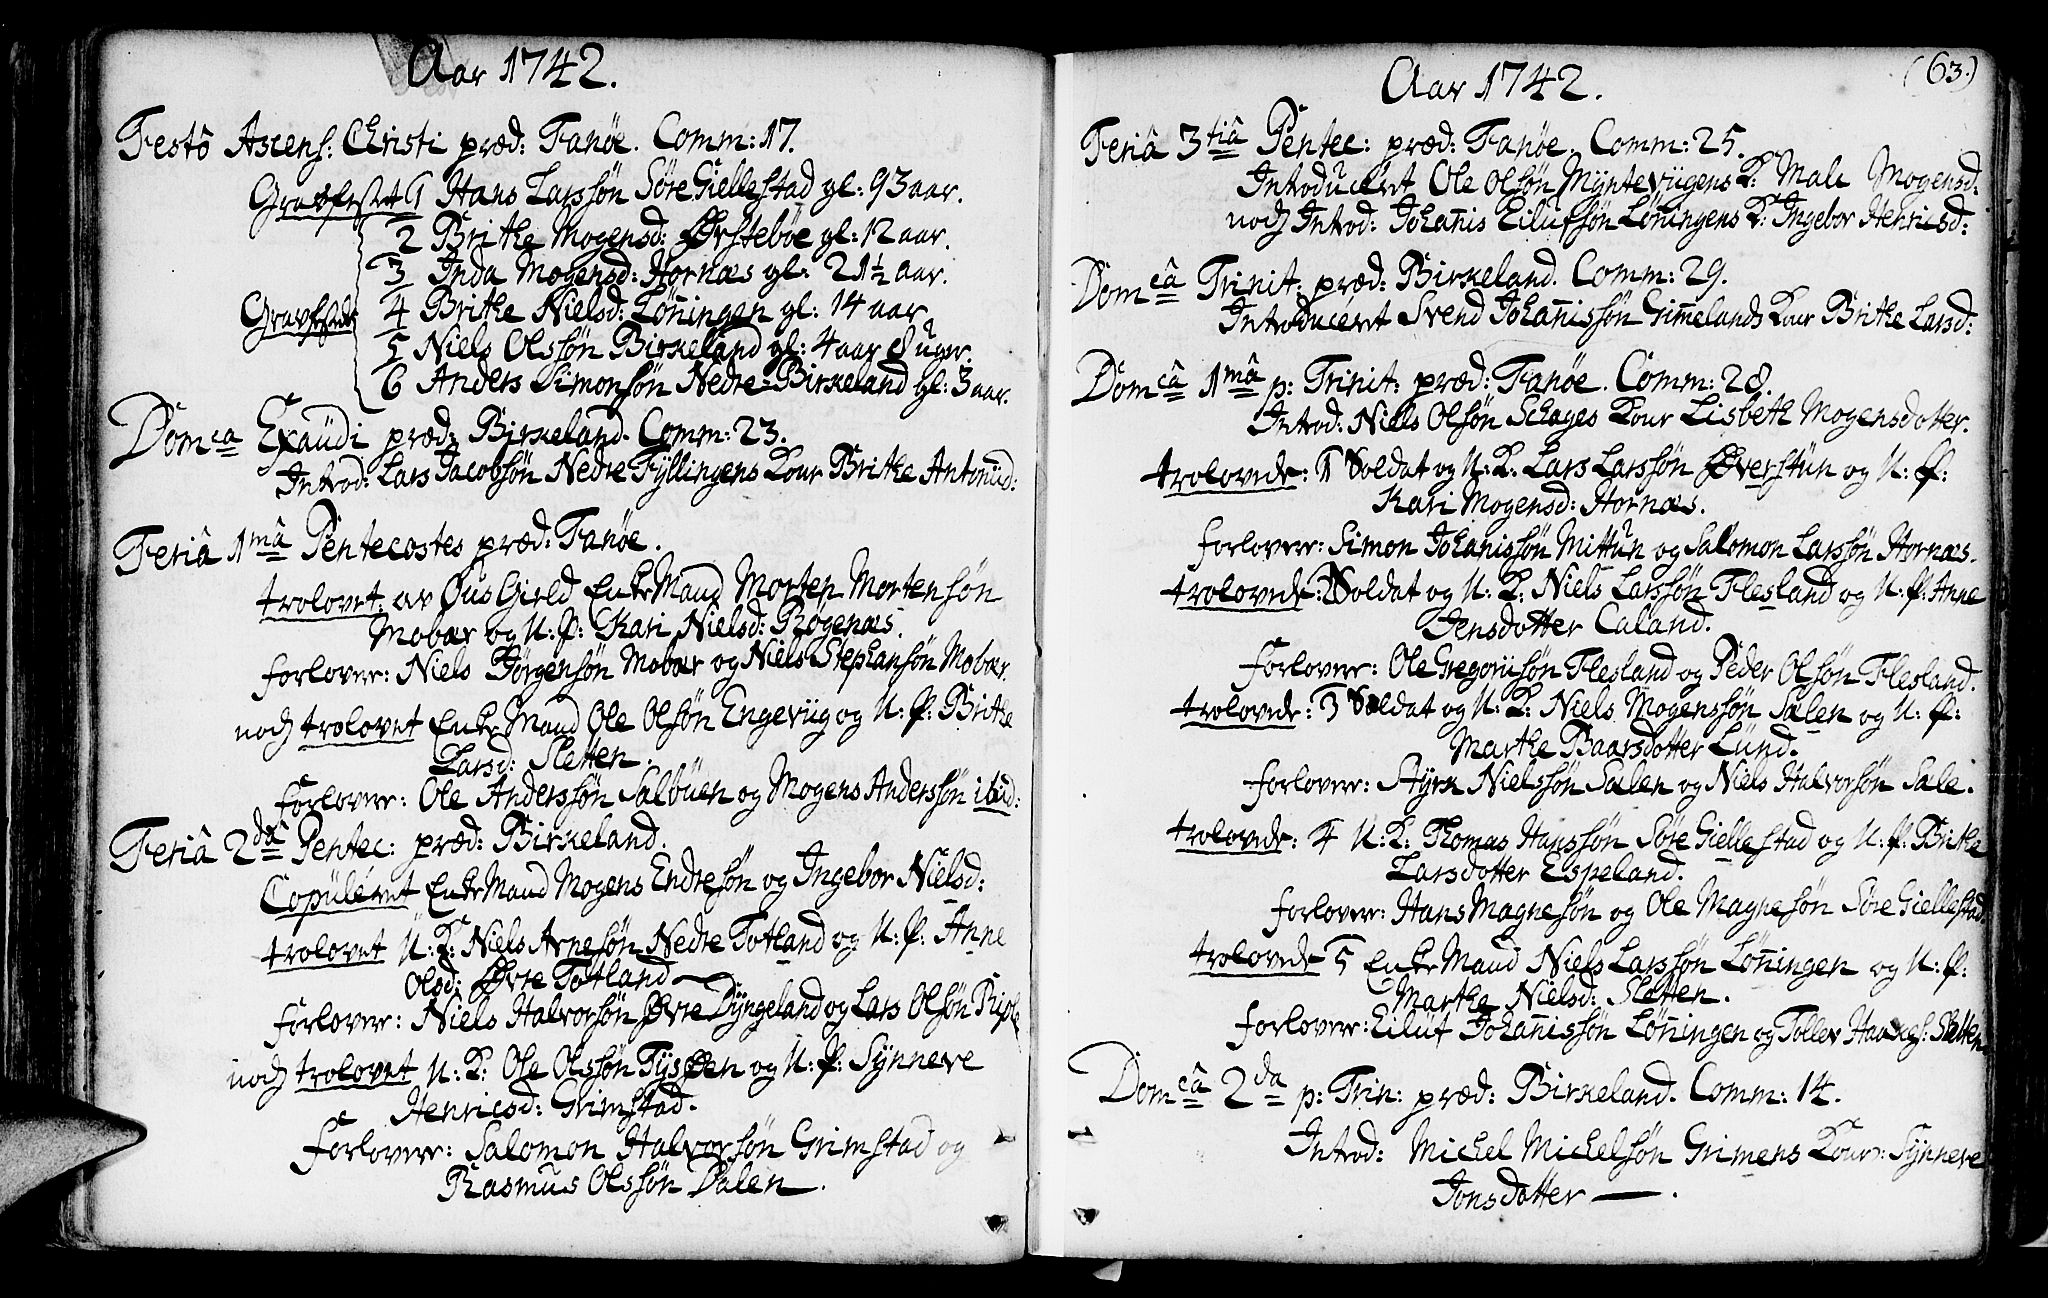 Aar 1742.
Festô Ascens: Christi præd: Fanøe. Comm: 17.
Gravfestet 1 Hans Larssøn Søre Giellestad gl: 93 aar.
2 Brithe Mogensd: Ørstebøe gl: 12 aar.
3 Inda Mogensd: Hornæs gl: 21½ aar.
Gravfestede 4 Brithe Nielsd: Løn̄ingen gl: 14 aar
5 Niels Olssøn Birkeland gl: 4 aar 8 uger.
6 Anders Simonsøn Nedre-Birkeland gl: 3 aar.
Domca Exaudi præd: Birkeland. Comm: 23.
Introd: Lars Jacobsøn Nedre Fyllingens Kour Brithe Antonid:
Feriâ 1mâ Pentecostes præd: Fanøe.
trolovet: av Ous Gield Enke Mand Morten Mortensøn
Mobær og U: P: Kari Nielsd: Røgenæs.
forlovere: Niels Jørgensøn Mobær og Niels Stephansøn Mobær.
noch trolovet Enke Mand Ole Olsøn Engevüg og U: P: Brithe
Larsd: Sletten.
Forlovere: Ole Anderssøn Salbuen og Mogens Anderssøn ibid:
Feriâ 2dâ Pentec: præd: Birkeland.
Copuleret Enke Mand Mogens Endresøn og Ingebor Nielsd:
trolovet U: K: Niels Arnesøn Nedre Totland og U: P: Anne
Olsd: Øvre Totland
Forlovere: Niels Halvorsøn Øvre Dyngeland og Lars Olsøn Riple
noch trolovet U: K: Ole Olssøn Tyssen og U: P: Synneve
Henricsd: Grimstad.
Forlovere: Salomon Halvorsøn Grimstad og
Rasmus Olssøn Dalen.
Aar 1742.
(63.)
Feriâ 3tiâ Pentec: præd: Fanøe. Comm: 25.
Introduceret Ole Olsøn Myntevügens K: Male Mogensd:
noch Introd: Johan̄is Eilufsøn Løn̄ingens K: Ingebor Henricsd:
Domcâ Trinit: præd: Birkeland. Comm: 29.
Introduceret Svend Johan̄issøn Grim̄elands Kour Brithe Larsd:
Domcâ 1mâ p: Trinit: præd: Fanøe. Comm: 28.
Introd: Niels Olsøn Schages Kour Lisbeth Mogensdotter.
trolovede: 1 Soldat og U: K: Lars Larssøn Øverstun og U: P:
Kari Mogensd: Hornæs.
forlovere: Simon Johan̄issøn Mittun og Salomon Larssøn Hornæs.
trolovede: 2 Soldat og U: K: Niels Larssøn Flesland og U: P: Anne
Jensdotter Caland.
Forlovere: Ole Gregoriisøn Flesland og Peder Olsøn Flesland.
trolovede: 3 Soldat og U: K: Niels Mogenssøn Salen og U: P:
Marthe Baarsdotter Lund.
forlovere: Styrk Nielssøn Salen og Niels Halvorsøn Sale.
trolovede: 4 U: K: Thomas Hanssøn Søre Giellestad og U: P: Brithe
Larsdotter Espeland.
forlovere: Hans Magnesøn og Ole Magnesøn Søre Giellestad
trolovede 5 Enke Mand Niels Larssøn Løn̄ingen og U: P:
Marthe Nielsd: Sletten.
forlovere: Eiluf Johan̄issøn Løn̄ingen og Tollev Haakes: Sletten.
Domcâ 2da p: Trin: præd: Birkeland. Comm: 14.
Introd: Michel Michelsøn Grimens Kour: Synneve
Jonsdotter —.